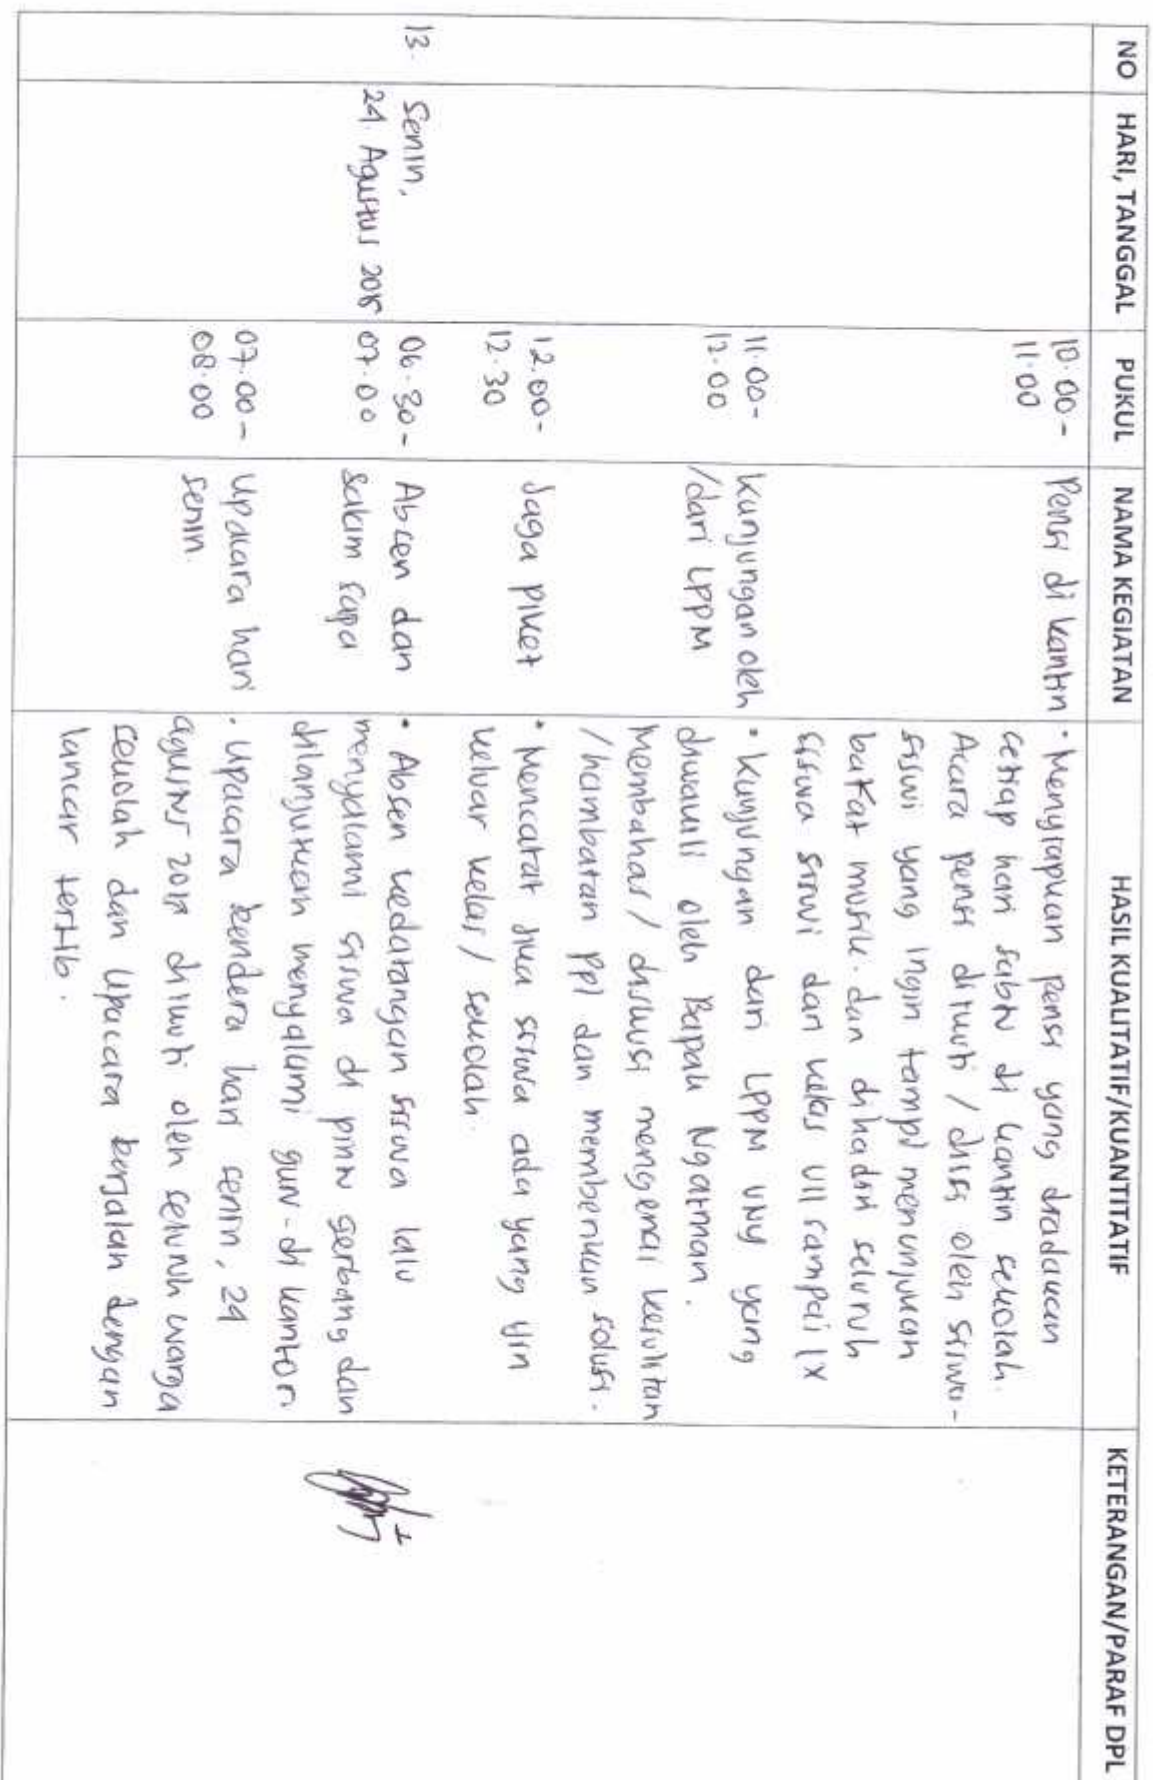 NO HARI, TANGGAL PUKUL NAMA KEGIATAN HASIL KUALITATIF/KUANTITATIF KETERANGAN/PARAF DPL
10.00 - Pensi di kantin • Menyiapkan pensi yang diadakan
11.00 setiap hari sabtu di kantin sekolah.
Acara pensi diikuti / diisi oleh siswa-
siswi yang ingin tampil menunjukan
bakat musik. dan dihadiri seluruh
siswa siswi dari kelas VII sampai IX
11.00 - Kunjungan oleh • Kunjungan dari LPPM UNY yang
12.00 /dari LPPM diwakili oleh Bapak Ngatman.
Membahas / diskusi mengenai kesulitan
/hambatan PPl dan memberikan solusi.
12.00 - Jaga piket • Mencatat jika siswa ada yang ijin
12.30 keluar kelas / sekolah.
13. Senin, 06.30 - Absen dan • Absen kedatangan siswa lalu
24 Agustus 2015 07.00 salam sapa menyalami siswa di pintu gerbang dan
dilanjutkan menyalami guru di kantor
07.00 - Upacara hari • Upacara bendera hari senin, 24
08.00 senin. agustus 2015 diikuti oleh seluruh warga
sekolah dan Upacara berjalan dengan
lancar tertib.